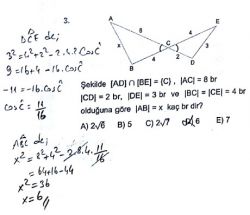 3.
DCE de;
3²=4²+2²-2.2.4.cosĉ
9=16+4-16.cosĉ
-11=-16.cosĉ
cosĉ=11/16
ABC de;
x²=8²+4²-2.8.4.11/16
=64+16-44
x²=36
x=6//
A
E
8
4
3
C
x
4
2
B
D
Şekilde [AD] ∩ [BE] = {C}, |AC| = 8 br
|CD| = 2 br, |DE| = 3 br ve |BC| = |CE| = 4 br
olduğuna göre |AB| = x kaç br dir?
A) 2√6 B) 5 C) 2√7 D) 6 E) 7